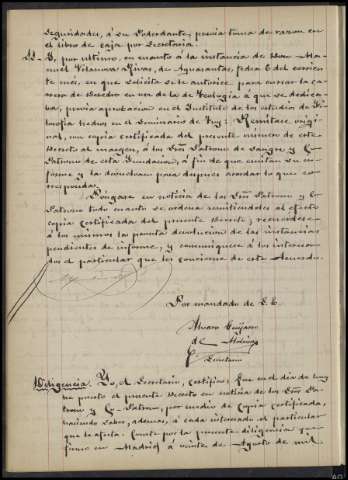 seguridades, á su Poderdante, previa toma de razon en
el libro de caja por Secretaría.
22.- Y, por último, en cuanto á la instancia de Don Ma-
nuel Vilanova Rivas, de Aguasantas, fecha 6 del corrien-
te mes, en que solicita se le autorice para cursar la ca-
rrera de Derecho en vez de la de Teología á que se dedica-
ba, previa aprobacion en el Instituto de los estudios de Fi-
losofía hechos en el Seminario de Tuy: Remítase origi-
nal, con copia certificada del presente número de este
Decreto al margen, á los Dres. Patrono de Sangre y C-
Patrono de esta Fundacion, á fin de que emitan su in-
forme y la devuelvan para despues acordar lo que co-
rresponda.
Póngase en noticia de los Dres. Patrono y C-
Patrono todo cuanto se ordena remitiéndoles al efecto
copia certificada del presente Decreto, recuérdese-
á los mismos la pronta devolucion de las instancias
pendientes de informe, y comuníquese á los interesa-
dos el particular que les concierna de este Acuerdo.
Por mandado de S. E.
Alvaro
de Molina
Secretario
Diligencia. Yo, el Secretario, certifico: Que en el dia de hoy
he puesto el presente Decreto en noticia de los Dres. Pa-
trono y C-Patrono, por medio de copia certificada,
haciendo saber, además, á cada interesado el particular
que le afecta. Conste por la presente diligencia que
firmo en Madrid á veinte de Agosto de mil